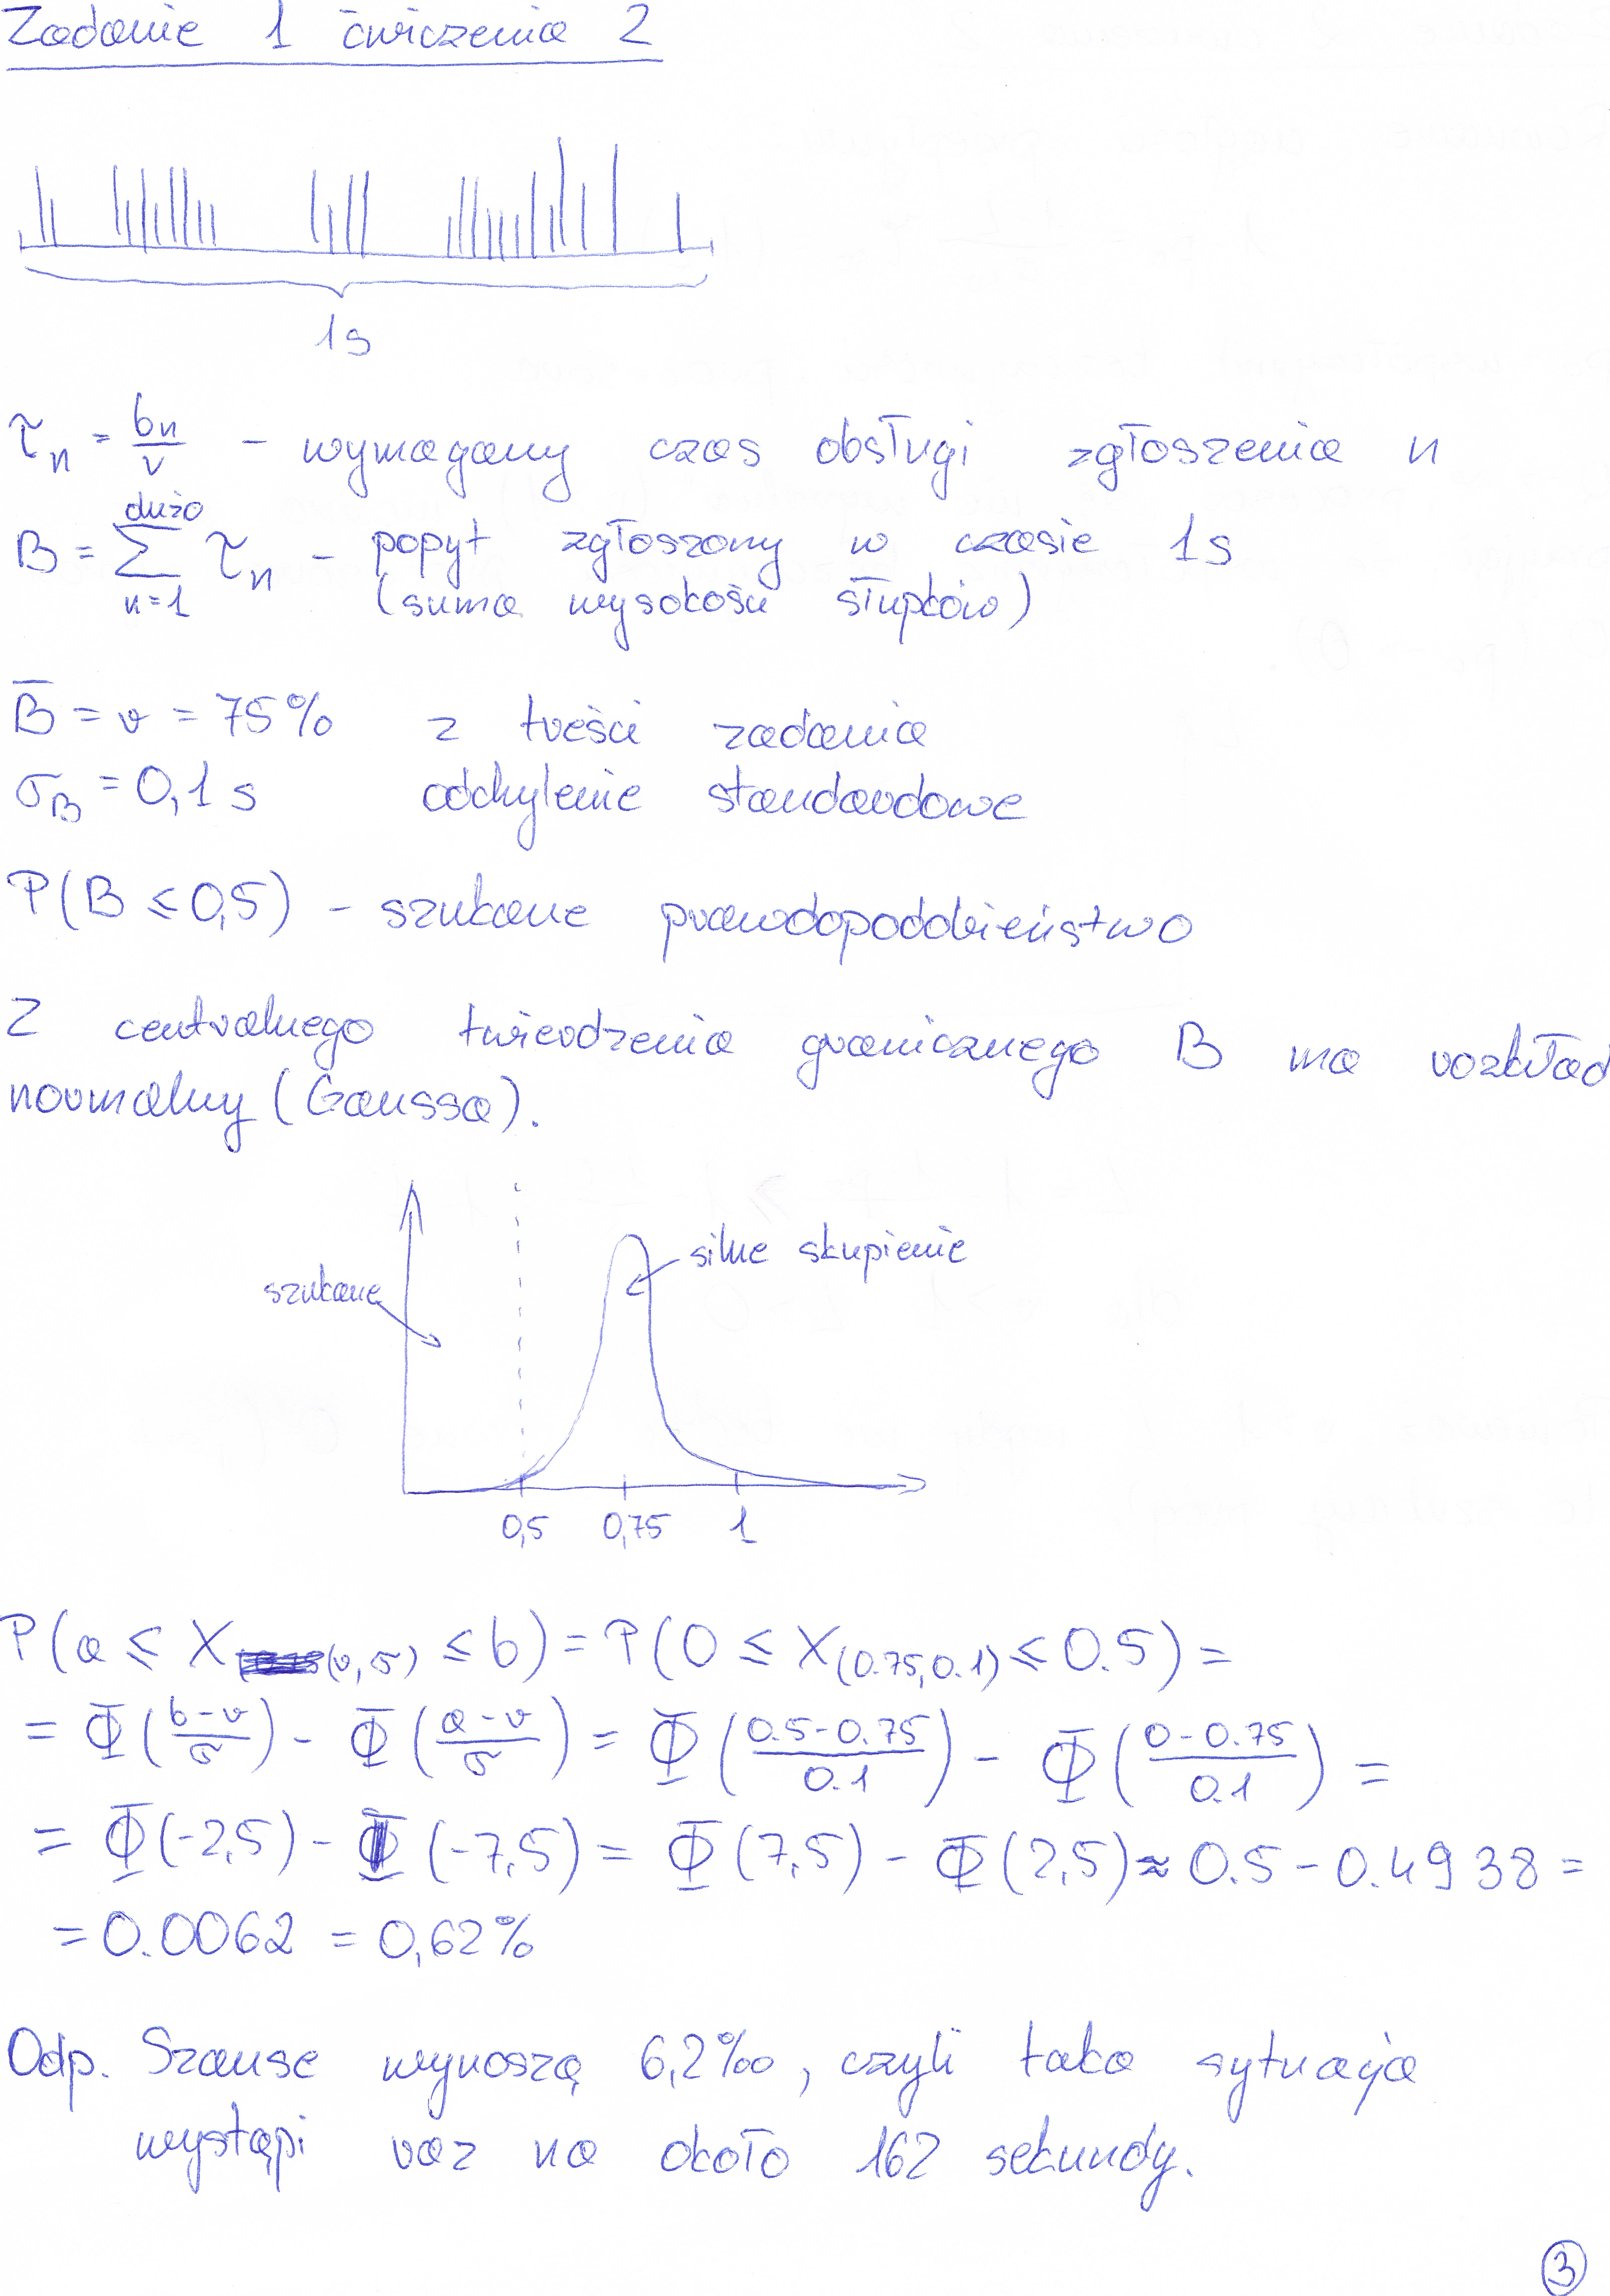 Zadanie 1 ćwiczenia 2
1s
τn = bn/v – wymagany czas obsługi zgłoszenia n
B = dużo∑n=1 τn – popyt zgłoszony w czasie 1s
(suma wysokości słupków)
B̅ = v = 75% z treści zadania
σB = 0,1 s odchylenie standardowe
P(B ≤ 0,5) – szukane prawdopodobieństwo
Z centralnego twierdzenia granicznego B ma rozkład
normalny (Gaussa).
silne skupienie
szukane
0,5 0,75 1
P(a ≤ X(v,σ) ≤ b) = P(0 ≤ X(0.75,0.1) ≤ 0.5) =
= Φ((b-v)/σ) - Φ((a-v)/σ) = Φ((0.5-0.75)/0.1) - Φ((0-0.75)/0.1) =
= Φ(-2,5) - Φ(-7,5) = Φ(7,5) - Φ(2,5) ≈ 0.5 - 0.4938 =
= 0.0062 = 0,62%
Odp. Szanse wynoszą 6,2‰, czyli taka sytuacja
wystąpi raz na około 162 sekundy.
3